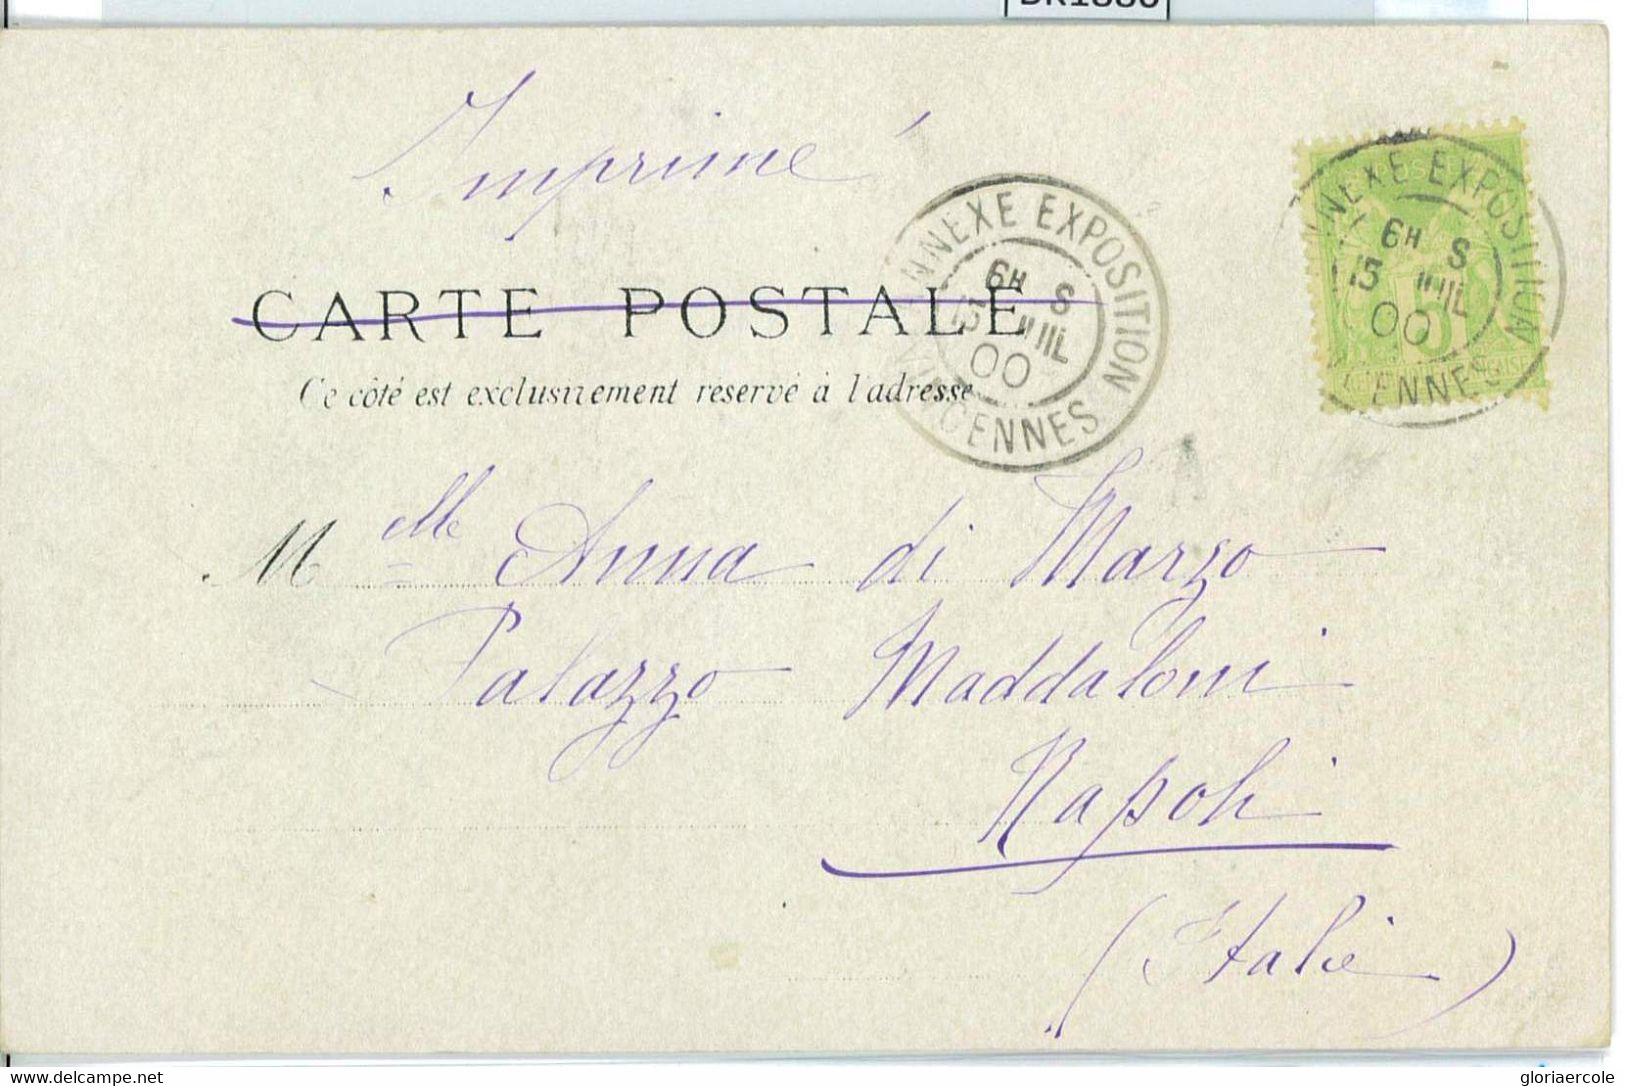 Imprimé
CARTE POSTALE
Ce côté est exclusivement réservé à l'adresse
ANNEXE EXPOSITION
6H S
15 JUIL
00
VINCENNES
ANNEXE EXPOSITION
6H S
15 JUIL
00
VINCENNES
Melle Anna di Marzo
Palazzo Maddaloni
Napoli
(Italie)
gloriaercole